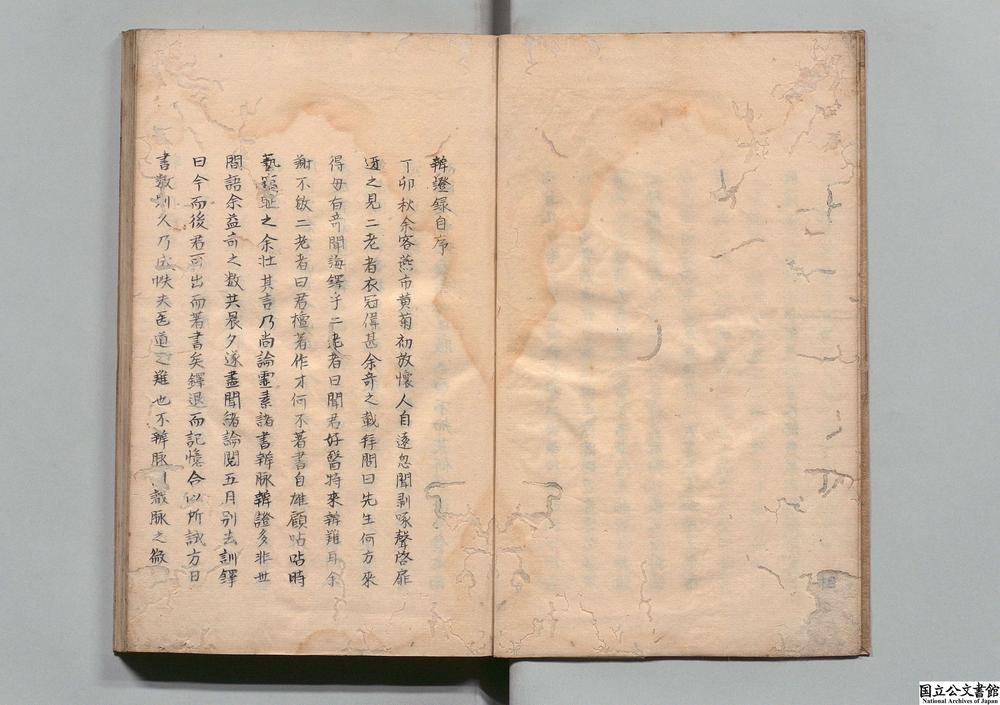 辨證錄自序
丁卯秋余客燕市黄菊初放懷人自遠忽聞剥啄聲啓扉
迓之見二老者衣冠偉甚余奇之載拜問曰先生何方來
得毋有奇聞誨鐸乎二老者曰聞君好醫特來辨難耳余
謝不敏二老者曰君擅著作才何不著書自雄顧呫呫時
藝 之余壮其言乃尚論靈素諸書辨脉辨證多非世
間語余益奇之数共晨夕遂盡聞緒論閲五月别去訓鐸
曰今而後君可出而著書矣鐸退而記憶合以所試方日
書数則久乃成帙夫医道之難也不辨脉 脉之微
国立公文書館
National Archives of Japan